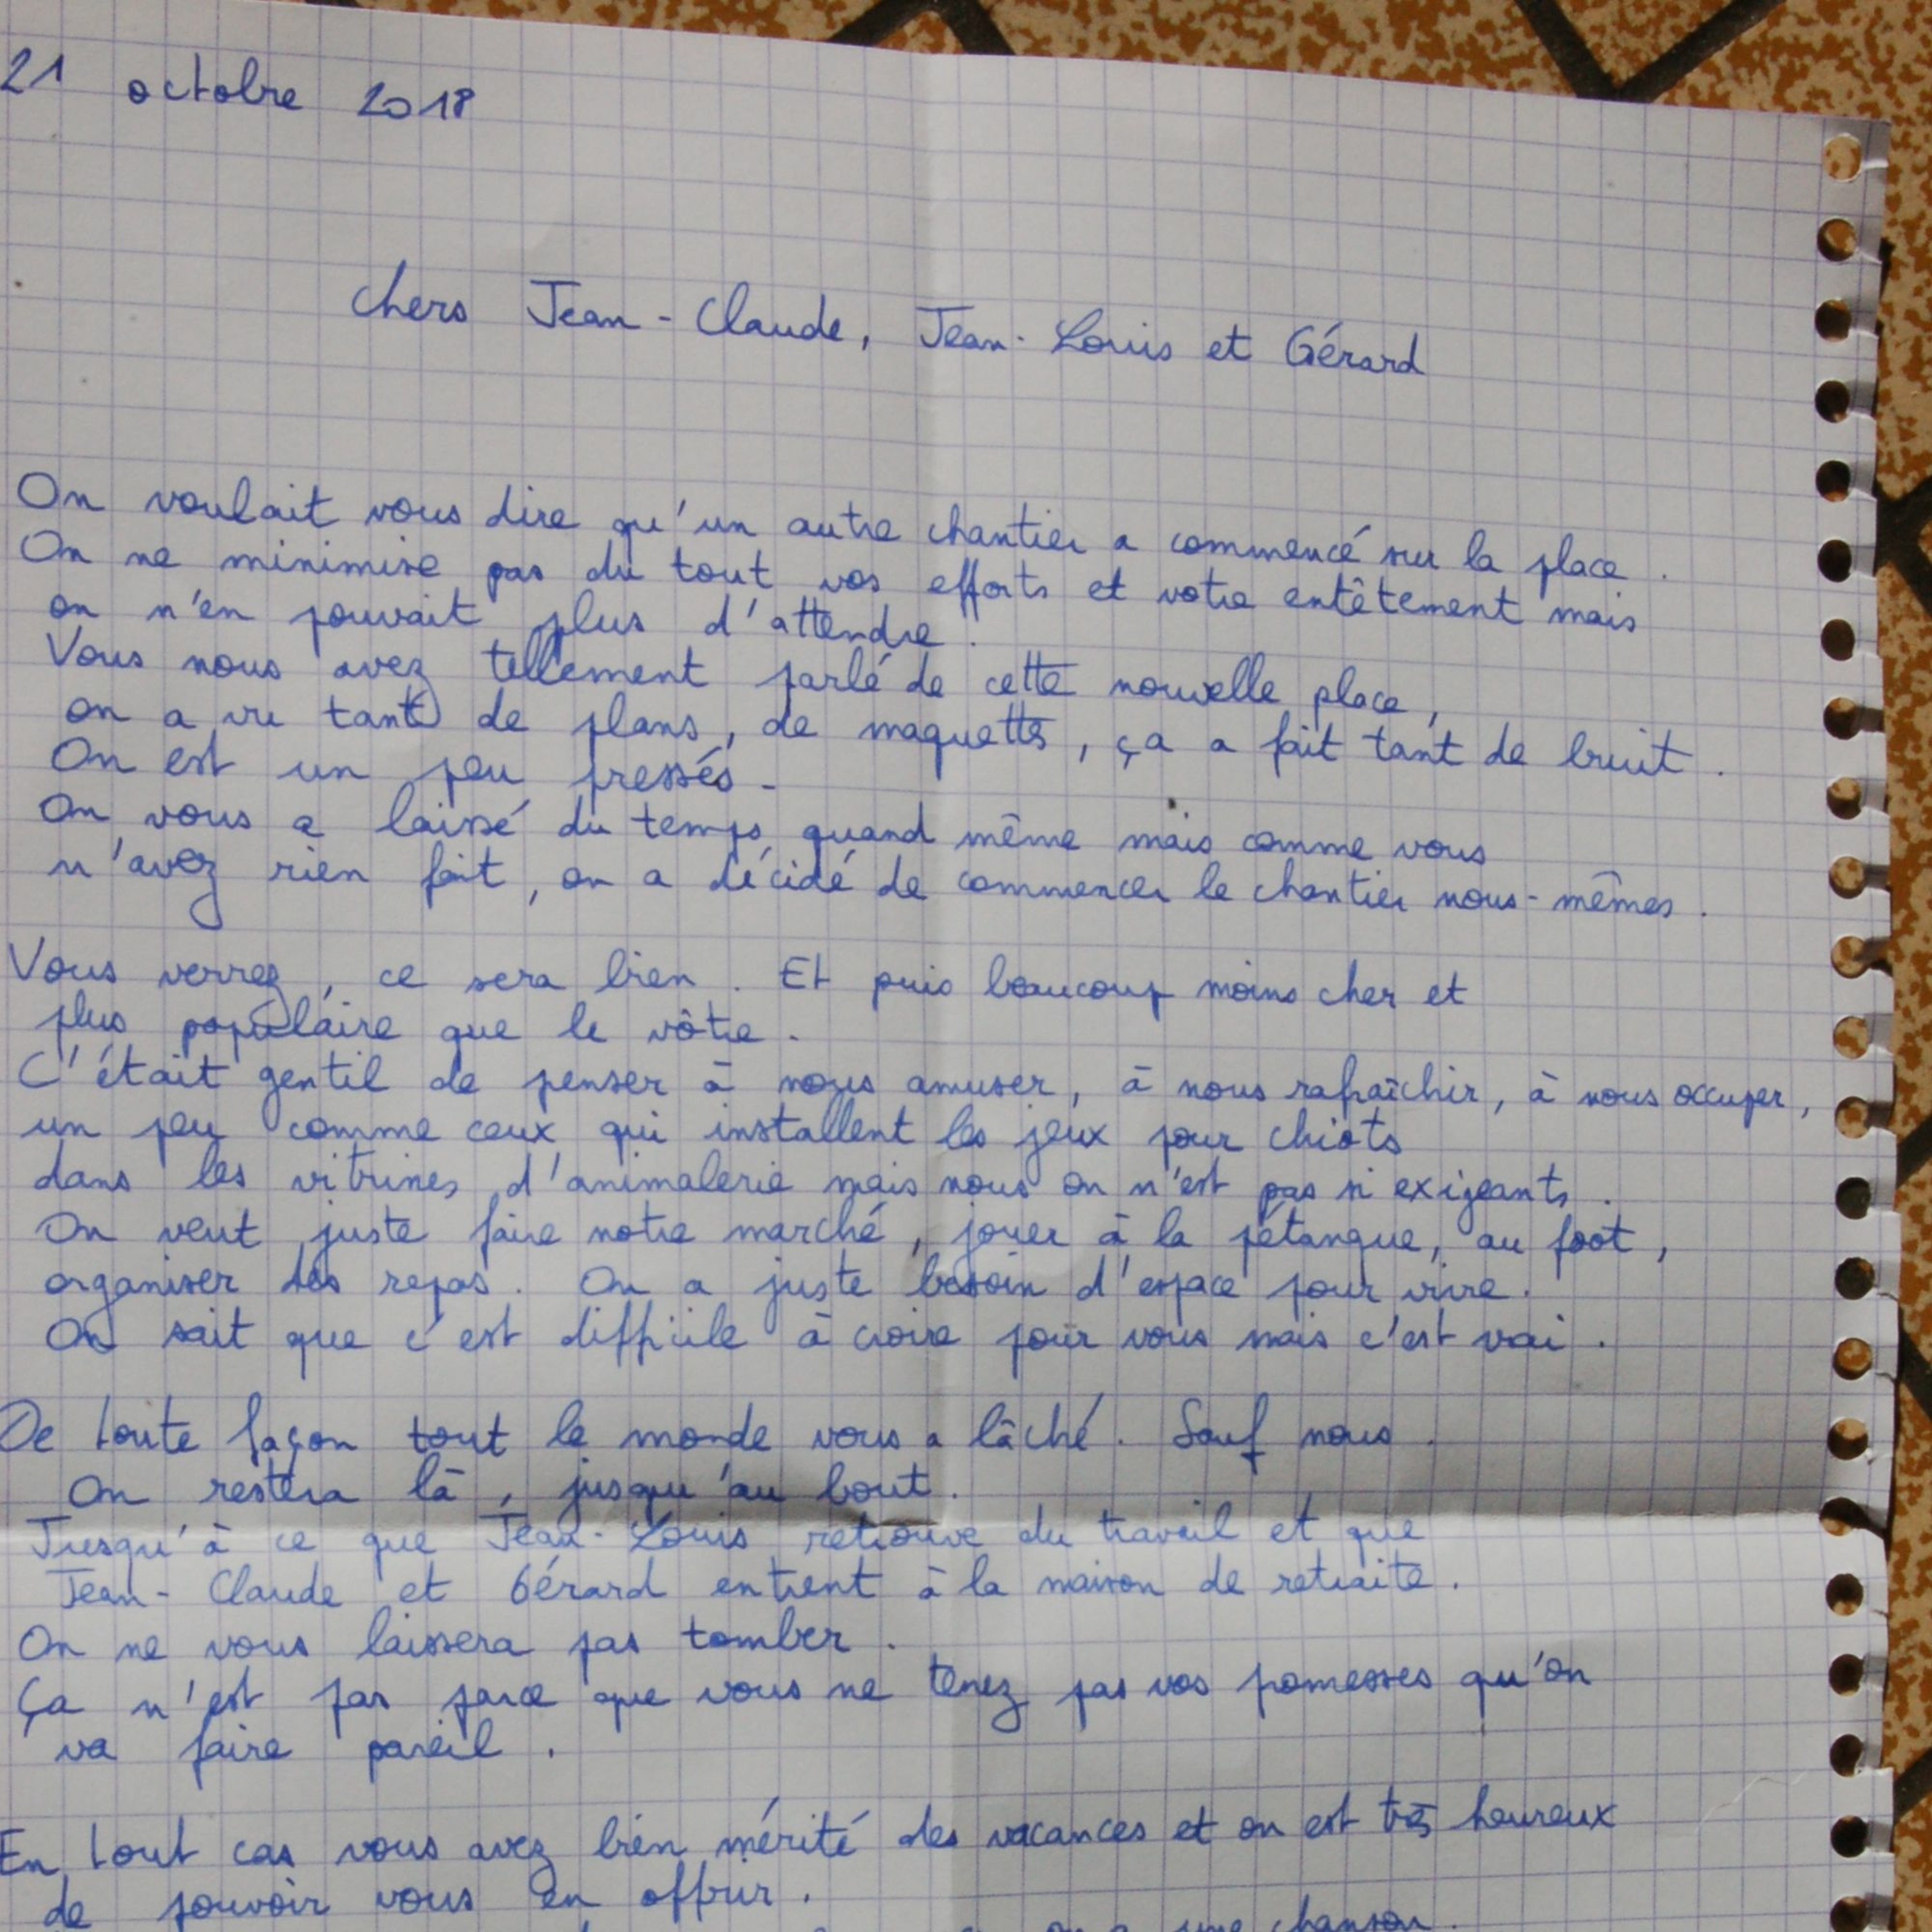 21 octobre 2018
Chers Jean-Claude, Jean-Louis et Gérard
On voulait vous dire qu'un autre chantier a commencé sur la place.
On ne minimise pas du tout vos efforts et votre entêtement mais
on n'en pouvait plus d'attendre.
Vous nous avez tellement parlé de cette nouvelle place,
on a vu tant de plans, de maquettes, ça a fait tant de bruit.
On est un peu pressés.
On vous a laissé du temps quand même mais comme vous
n'avez rien fait, on a décidé de commencer le chantier nous-mêmes.
Vous verrez, ce sera bien. Et puis beaucoup moins cher et
plus populaire que le vôtre.
C'était gentil de penser à nous amuser, à nous rafraîchir, à nous occuper,
un peu comme ceux qui installent les jeux pour chiots
dans les vitrines d'animalerie mais nous on n'est pas si exigeants.
On veut juste faire notre marché, jouer à la pétanque, au foot,
organiser des repas. On a juste besoin d'espace pour vivre.
On sait que c'est difficile à croire pour vous mais c'est vrai.
De toute façon tout le monde vous a lâché. Sauf nous.
On restera là, jusqu'au bout.
Jusqu'à ce que Jean-Louis retrouve du travail et que
Jean-Claude et Gérard entrent à la maison de retraite.
On ne vous laissera pas tomber.
Ça n'est pas parce que vous ne tenez pas vos promesses qu'on
va faire pareil.
En tout cas vous avez bien mérité des vacances et on est très heureux
de pouvoir vous en offrir.
on a une chanson.